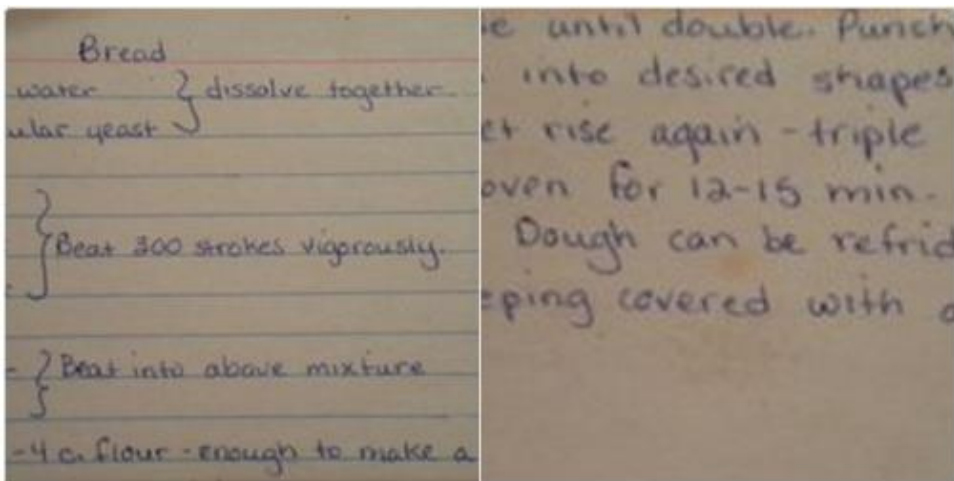 Bread
water } dissolve together
ular yeast
} Beat 300 strokes vigorously.
} Beat into above mixture
-4 c. flour - enough to make a
e until double. Punch
into desired shapes
et rise again - triple
oven for 12-15 min.
Dough can be refrid
eping covered with